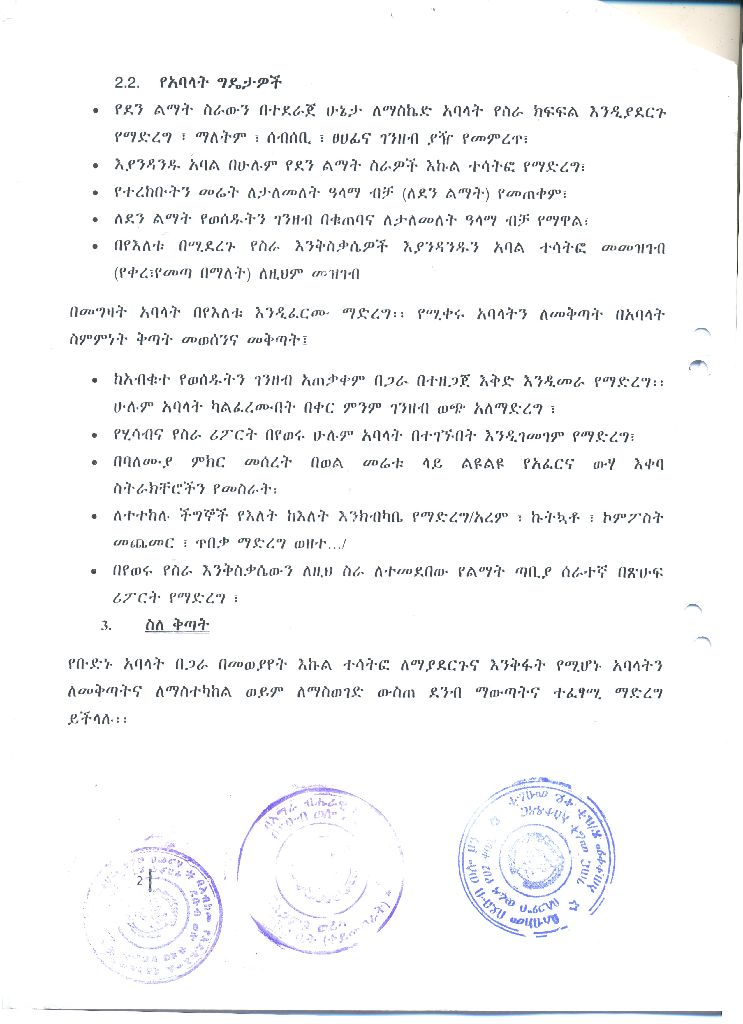 2.2. የአባላት ግዴታዎች
• የደን ልማት ስራውን በተደራጀ ሁኔታ ለማስኬድ አባላት የስራ ክፍፍል እንዲያደርጉ
የማድረግ ፣ ማለትም ፣ ሰብሰቢ ፣ ፀሀፊና ገንዘብ ያዥ የመምረጥ፣
• እያንዳንዱ አባል በሁሉም የደን ልማት ስራዎች እኩል ተሳትፎ የማድረግ፣
• የተረከቡትን መሬት ለታለመለት ዓላማ ብቻ (ለደን ልማት) የመጠቀም፣
• ለደን ልማት የወሰዱትን ገንዘብ በቁጠባና ለታለመለት ዓላማ ብቻ የማዋል፣
• በየእለቱ በሚደረጉ የስራ እንቅስቃሴዎች እያንዳንዱን አባል ተሳትፎ መመዝገብ
(የቀረ፣የመጣ በማለት) ለዚህም መዝገብ
በመግዛት አባላት በየእለቱ እንዲፈርሙ ማድረግ፡፡ የሚቀሩ አባላትን ለመቅጣት በአባላት
ስምምነት ቅጣት መወሰንና መቅጣት፤
• ከአብቁተ የወሰዱትን ገንዘብ አጠቃቀም በጋራ በተዘጋጀ እቅድ እንዲመራ የማድረግ፡፡
ሁሉም አባላት ካልፈረሙበት በቀር ምንም ገንዘብ ወጭ አለማድረግ ፣
• የሂሳብና የስራ ሪፖርት በየወሩ ሁሉም አባላት በተገኙበት እንዲገመገም የማድረግ፣
• በባለሙያ ምክር መሰረት በወል መሬቱ ላይ ልዩልዩ የአፈርና ውሃ እቀባ
ስትራክቸሮችን የመስራት፣
• ለተተከሉ ችግኞች የእለት ከእለት እንክብካቤ የማድረግ/አረም ፣ ኩትኳቶ ፣ ኮምፖስት
መጨመር ፣ ጥበቃ ማድረግ ወዘተ.../
• በየወሩ የስራ እንቅስቃሴውን ለዚህ ስራ ለተመደበው የልማት ጣቢያ ሰራተኛ በጽሁፍ
ሪፖርት የማድረግ ፣
3. ስለ ቅጣት
የቡድኑ አባላት በጋራ በመወያየት እኩል ተሳትፎ ለማያደርጉና እንቅፋት የሚሆኑ አባላትን
ለመቅጣትና ለማስተካከል ወይም ለማስወገድ ውስጠ ደንብ ማውጣትና ተፈፃሚ ማድረግ
ይችላሉ፡፡
2